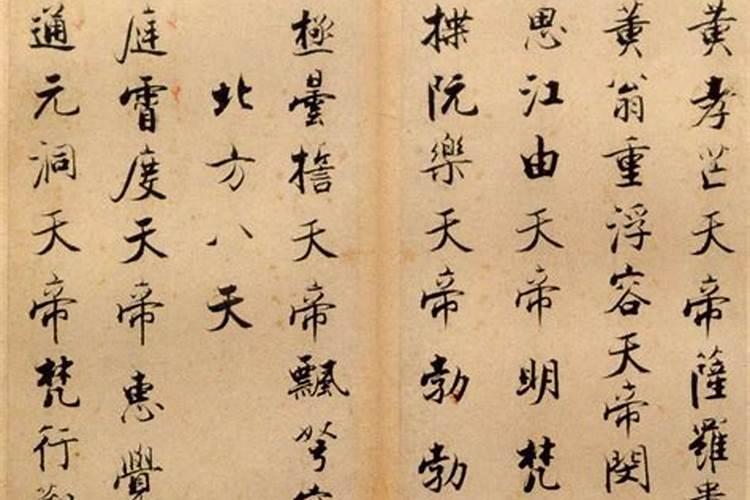 黄孝芒天帝薩羅婁
黄翁重浮容天帝閔
思江由天帝明梵
揲阮樂天帝勃勃
極曇誓天帝飄弩穹
北方八天
庭霄度天帝惠覺
通元洞天帝梵行